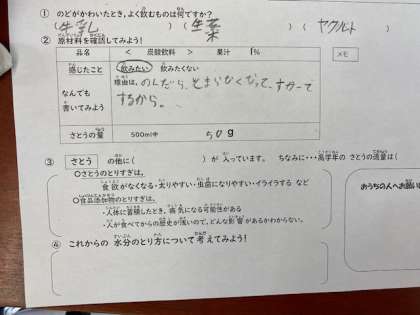 ① のどがかわいたとき、よく飲むものは何ですか?
(牛乳 ) (生茶 ) (ヤクルト
② 原材料を確認してみよう!
品名 < 炭酸飲料 > 果汁 1%
メモ
感じたこと
なんでも
書いてみよう
飲みたい 飲みたくない
理由は、のんだら、とまらなくなって、すかーっ
するから。
さとうの量 500ml中 50g
③ さとう の他に( )が 入っています。 ちなみに・・・高学年の さとうの流量は(
○さとうのとりすぎは、
食欲がなくなる・太りやすい・虫歯になりやすい・イライラする など
○食品添加物のとりすぎは、
・人体に蓄積したとき、病気になる可能性がある
・人が食べてからの歴史が浅いので、どんな影響があるかわからない。
おうちの人へお願い
④ これからの 水分のとり方について考えてみよう!